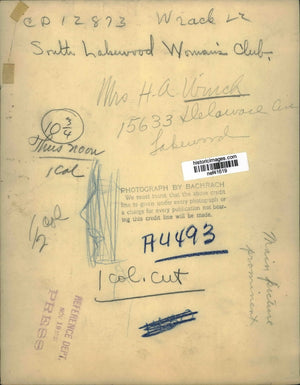 South Lakewood Woman's Club.
Mrs H. A.
15633 Delaware Ave
Lakewood
10 3/4
Thurs noon
1 Col
historicimages.com
PHOTOGRAPH BY BACHRACH
We must insist that the above credit
line is given under every photograph or
a charge for every publication not bear-
ing this credit line will be made.
1 Col
1/2
A4493
1 col. cut
Main picture
REFERENCE DEPT.
NOV
PRESS